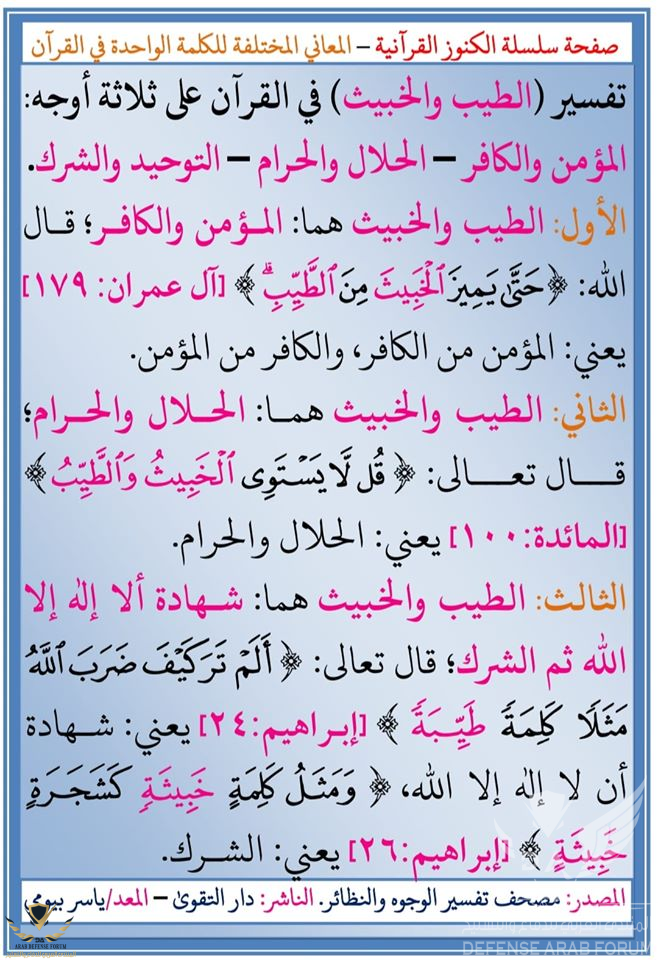 صفحة سلسلة الكنوز القرآنية – المعاني المختلفة للكلمة الواحدة في القرآن
تفسير (الطيب والخبيث) في القرآن على ثلاثة أوجه:
المؤمن والكافر – الحلال والحرام – التوحيد والشرك.
الأول: الطيب والخبيث هما: المـؤمن والكافـر؛ قـال
الله: ﴿حَتَّىٰ يَمِيزَ ٱلْخَبِيثَ مِنَ ٱلطَّيِّبِۗ﴾ [آل عمران: ١٧٩]
يعني: المؤمن من الكافر، والكافر من المؤمن.
الثاني: الطيب والخبيث همـا: الحـلال والحـرام؛
قـال تعـالى: ﴿قُل لَّا يَسْتَوِى ٱلْخَبِيثُ وَٱلطَّيِّبُ﴾
[المائدة:١٠٠] يعني: الحلال والحرام.
الثالث: الطيب والخبيث هما: شـهادة ألا إلٰه إلا
الله ثم الشرك؛ قال تعالى: ﴿أَلَمْ تَرَ كَيْفَ ضَرَبَ ٱللَّهُ
مَثَلًا كَلِمَةً طَيِّبَةً﴾ [إبـراهيم:٢٤] يعني: شـهادة
أن لا إلٰه إلا الله، ﴿وَمَثَلُ كَلِمَةٍ خَبِيثَةٍ كَشَجَرَةٍ
خَبِيثَةٍ﴾ [إبراهيم:٢٦] يعني: الشرك.
المصدر: مصحف تفسير الوجوه والنظائر. الناشر: دار التقوىٰ – المعد/ياسر بيومي
ARAB DEFENSE FORUM
DEFENSE ARAB FORUM